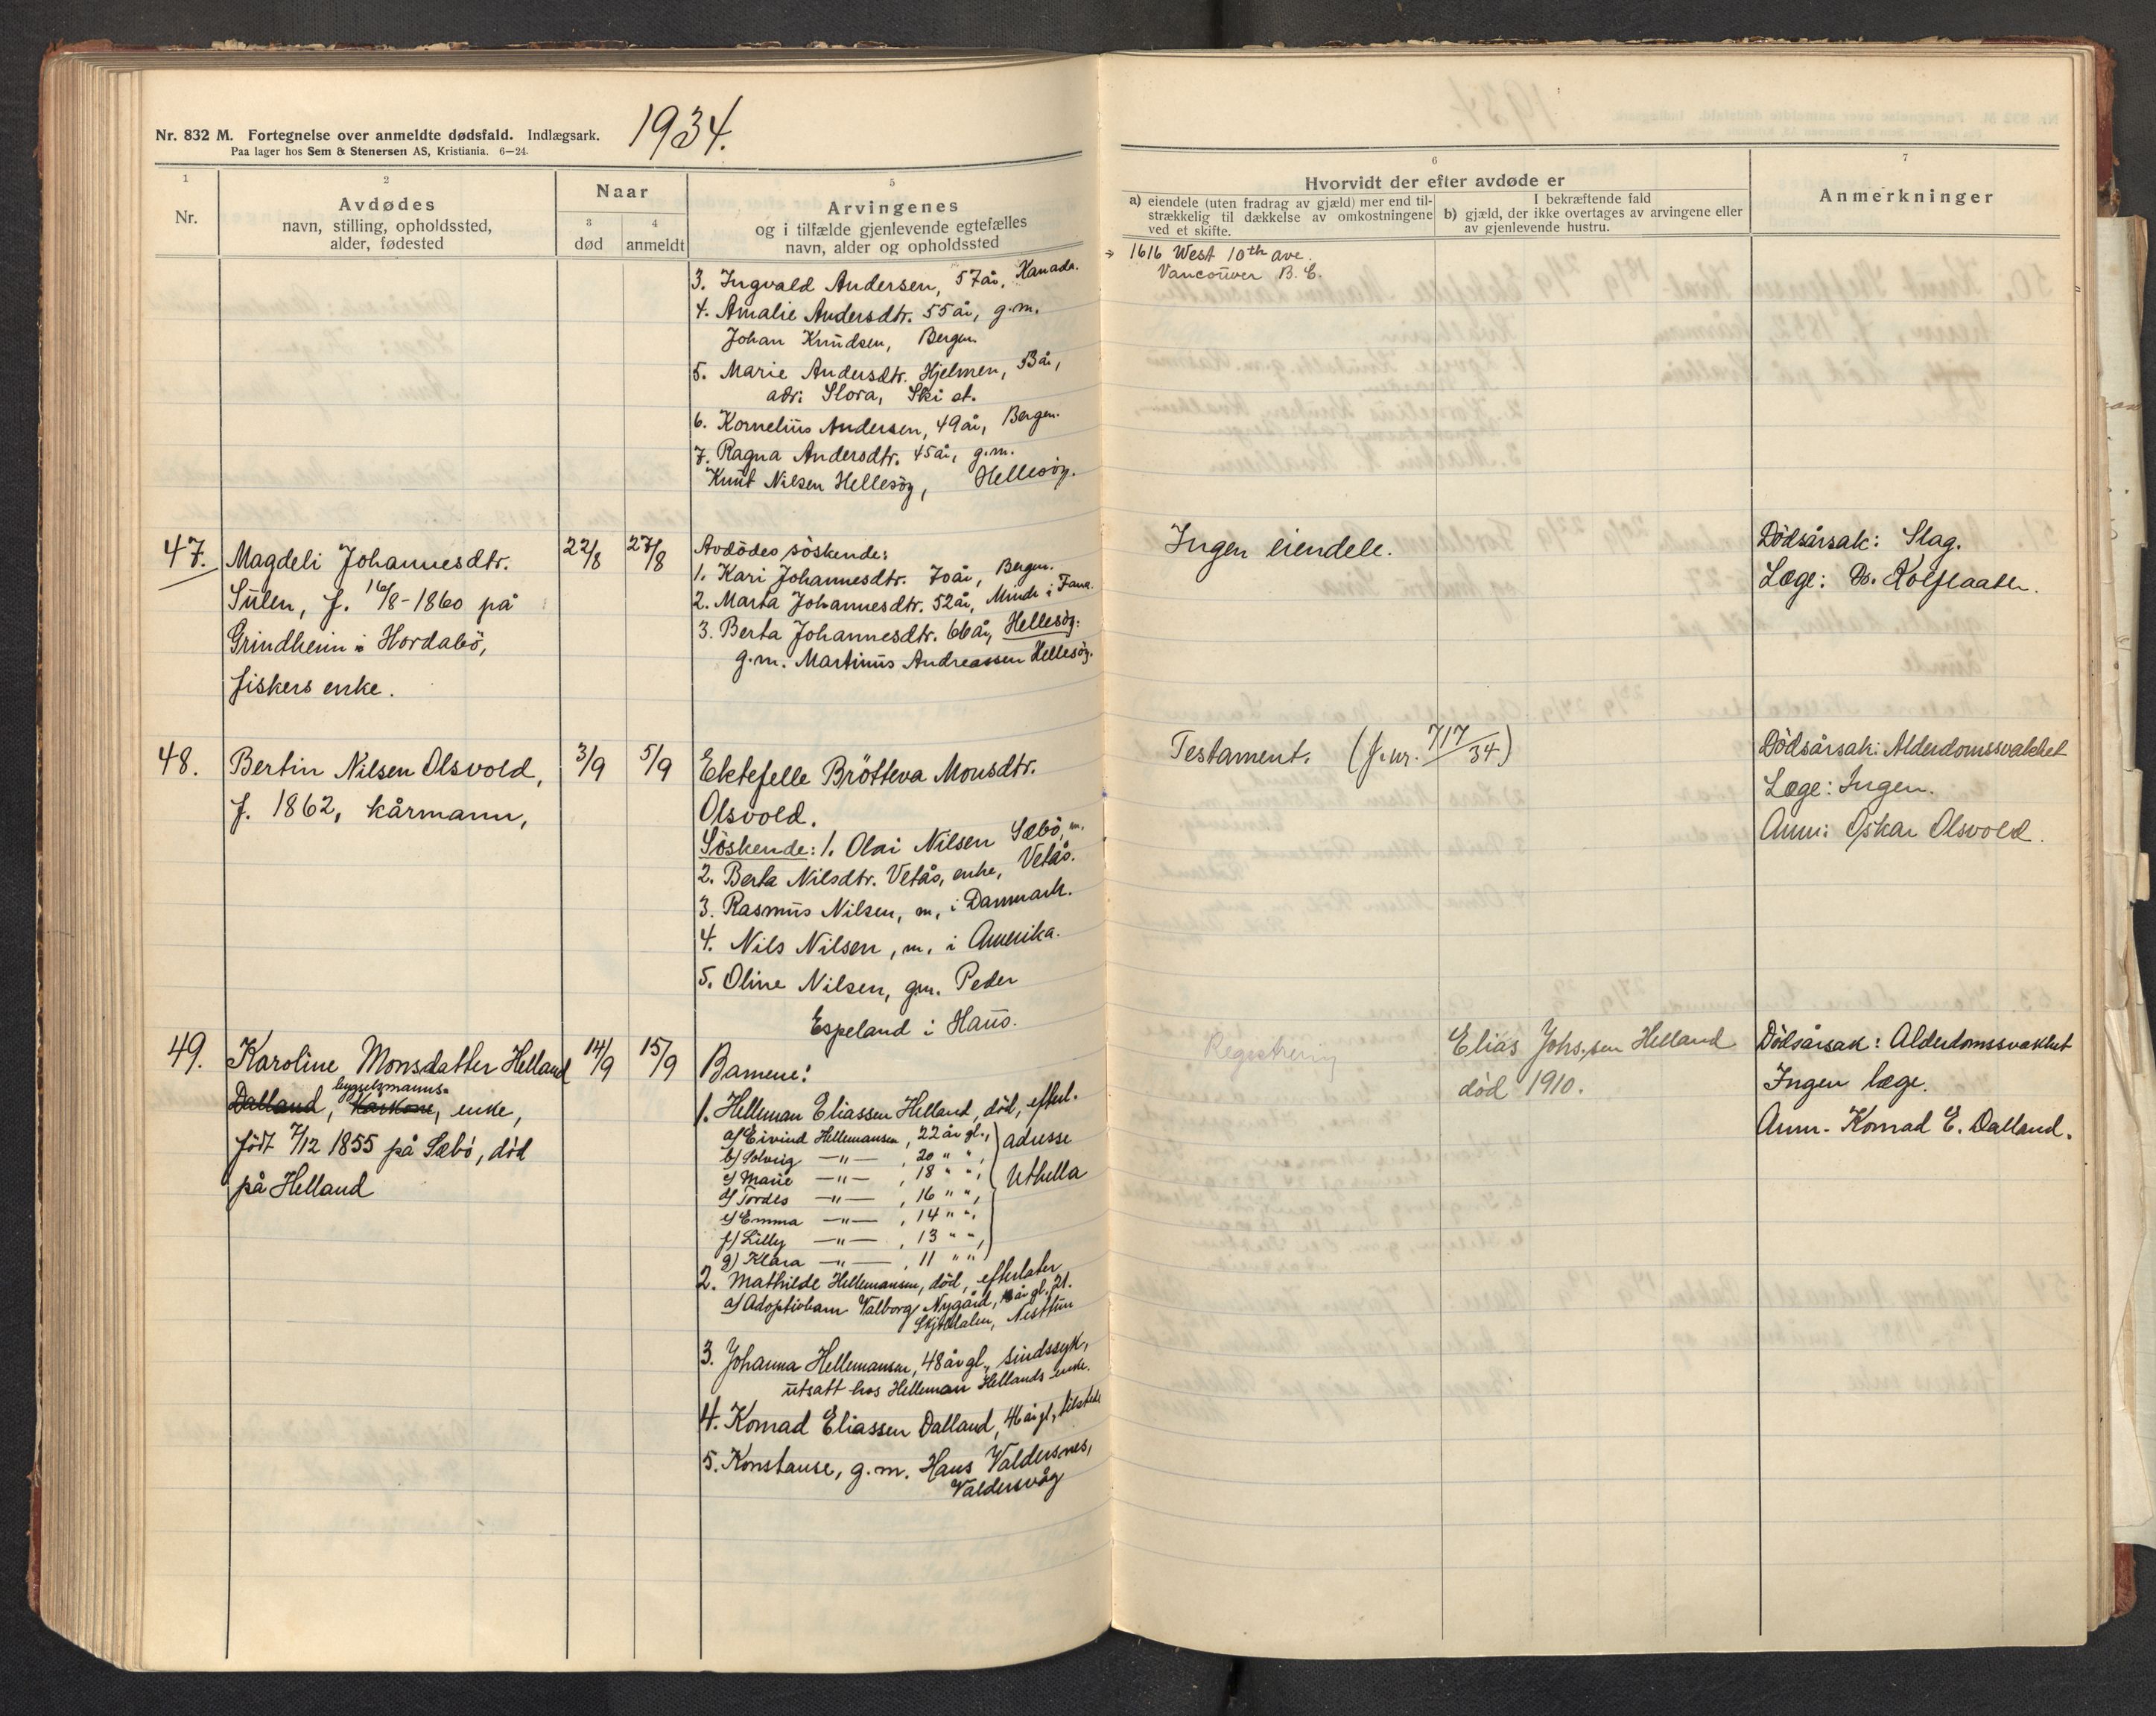 Nr. 832 M. Fortegnelse over anmeldte dødsfald. Indlægsark.
Paa lager hos Sem & Stenersen AS, Kristiania. 6—24.
1934.
1
Nr.
2
Avdødes
navn, stilling, opholdssted,
alder, fødested
Naar
3
død
4
anmeldt
5
Arvingenes
og i tilfælde gjenlevende egtefælles
navn, alder og opholdssted
3. Ingvald Andersen, 57 år, Kanada.
4. Amalie Andersdtr. 55 år, g.m.
Johan Knudsen, Bergen.
5. Marie Andersdtr. Hjelmen, 53 år,
adr: Slora, Ski st.
6. Kornelius Andersen, 49 år, Bergen.
7. Ragna Andersdtr. 45 år, g.m.
Knut Nilsen Hellesöy, Hellesöy.
47.
Magdeli Johannesdtr.
Sulen, f. 16/8-1860 på
Grindheim i Hordabö,
fiskers enke.
22/8
27/8
Avdödes söskende:
1. Kari Johannesdtr. 70 år, Bergen.
2. Marta Johannesdtr. 52 år, Minde i Fana.
3. Berta Johannesdtr. 66 år, Hellesöy:
g.m. Martinus Andreassen Hellesöy.
48.
Bertin Nilsen Olsvold,
f. 1862, kårmann,
3/9
5/9
Ektefelle Brötteva Monsdtr.
Olsvold.
Söskende: 1. Olai Nilsen Sæbö, m.
2. Berta Nilsdtr. Vetås, enke, Vetås.
3. Rasmus Nilsen, m, i Danmark.
4. Nils Nilsen, m. i Amerika.
5. Oline Nilsen, gm. Peder
Espeland i Haus.
49.
Karoline Monsdatter Helland
bygselmanns-
Dalland, enke,
født 7/12 1855 på Sæbö, död
på Helland
14/9
15/9
Barnene:
1. Helleman Eliassen Helland, död, efterl.
a) Eivind Hellemansen, 22 år gl.,
b) Solveig —"— , 20 " ",
c) Marie —"— , 18 " ",
d) Tordis —"— , 16 " ",
e) Emma —"— , 14 " ",
f) Lilly —"— , 13 " ",
g) Klara —"— , 11 " "
adresse
Uthella
2. Mathilde Hellemansen, död, efterlater
a) Adoptivbarn Valborg Nygård, år gl. 21.
Skjoldalen, Nesttun
3. Johanna Hellemansen, 48 år gl., sindssyk,
utsatt hos Helleman Hellands enke.
4. Konrad Eliassen Dalland, 46 år gl., tilstede
5. Konstanse, g.m. Hans Valdersnes,
Valdersvåg
6
Hvorvidt der efter avdøde er
a) eiendele (uten fradrag av gjæld) mer end til-
strækkelig til dækkelse av omkostningene
ved et skifte.
I bekræftende fald
b) gjæld, der ikke overtages av arvingene eller
av gjenlevende hustru.
7
Anmerkninger
1616 West 10th ave.
Vancouver B.C.
Ingen eiendele.
Dödsårsak: Slag.
Læge: Dr. Kolflaath.
Testament. (j.nr. 717/34)
Dödsårsak: Alderdomssvakhet
Læge: Ingen.
Anm: Oskar Olsvold.
Registrering
Elias Johs.sen Helland
död 1910.
Dödsårsak: Alderdomssvakhet
Ingen læge.
Anm- Konrad E. Dalland.